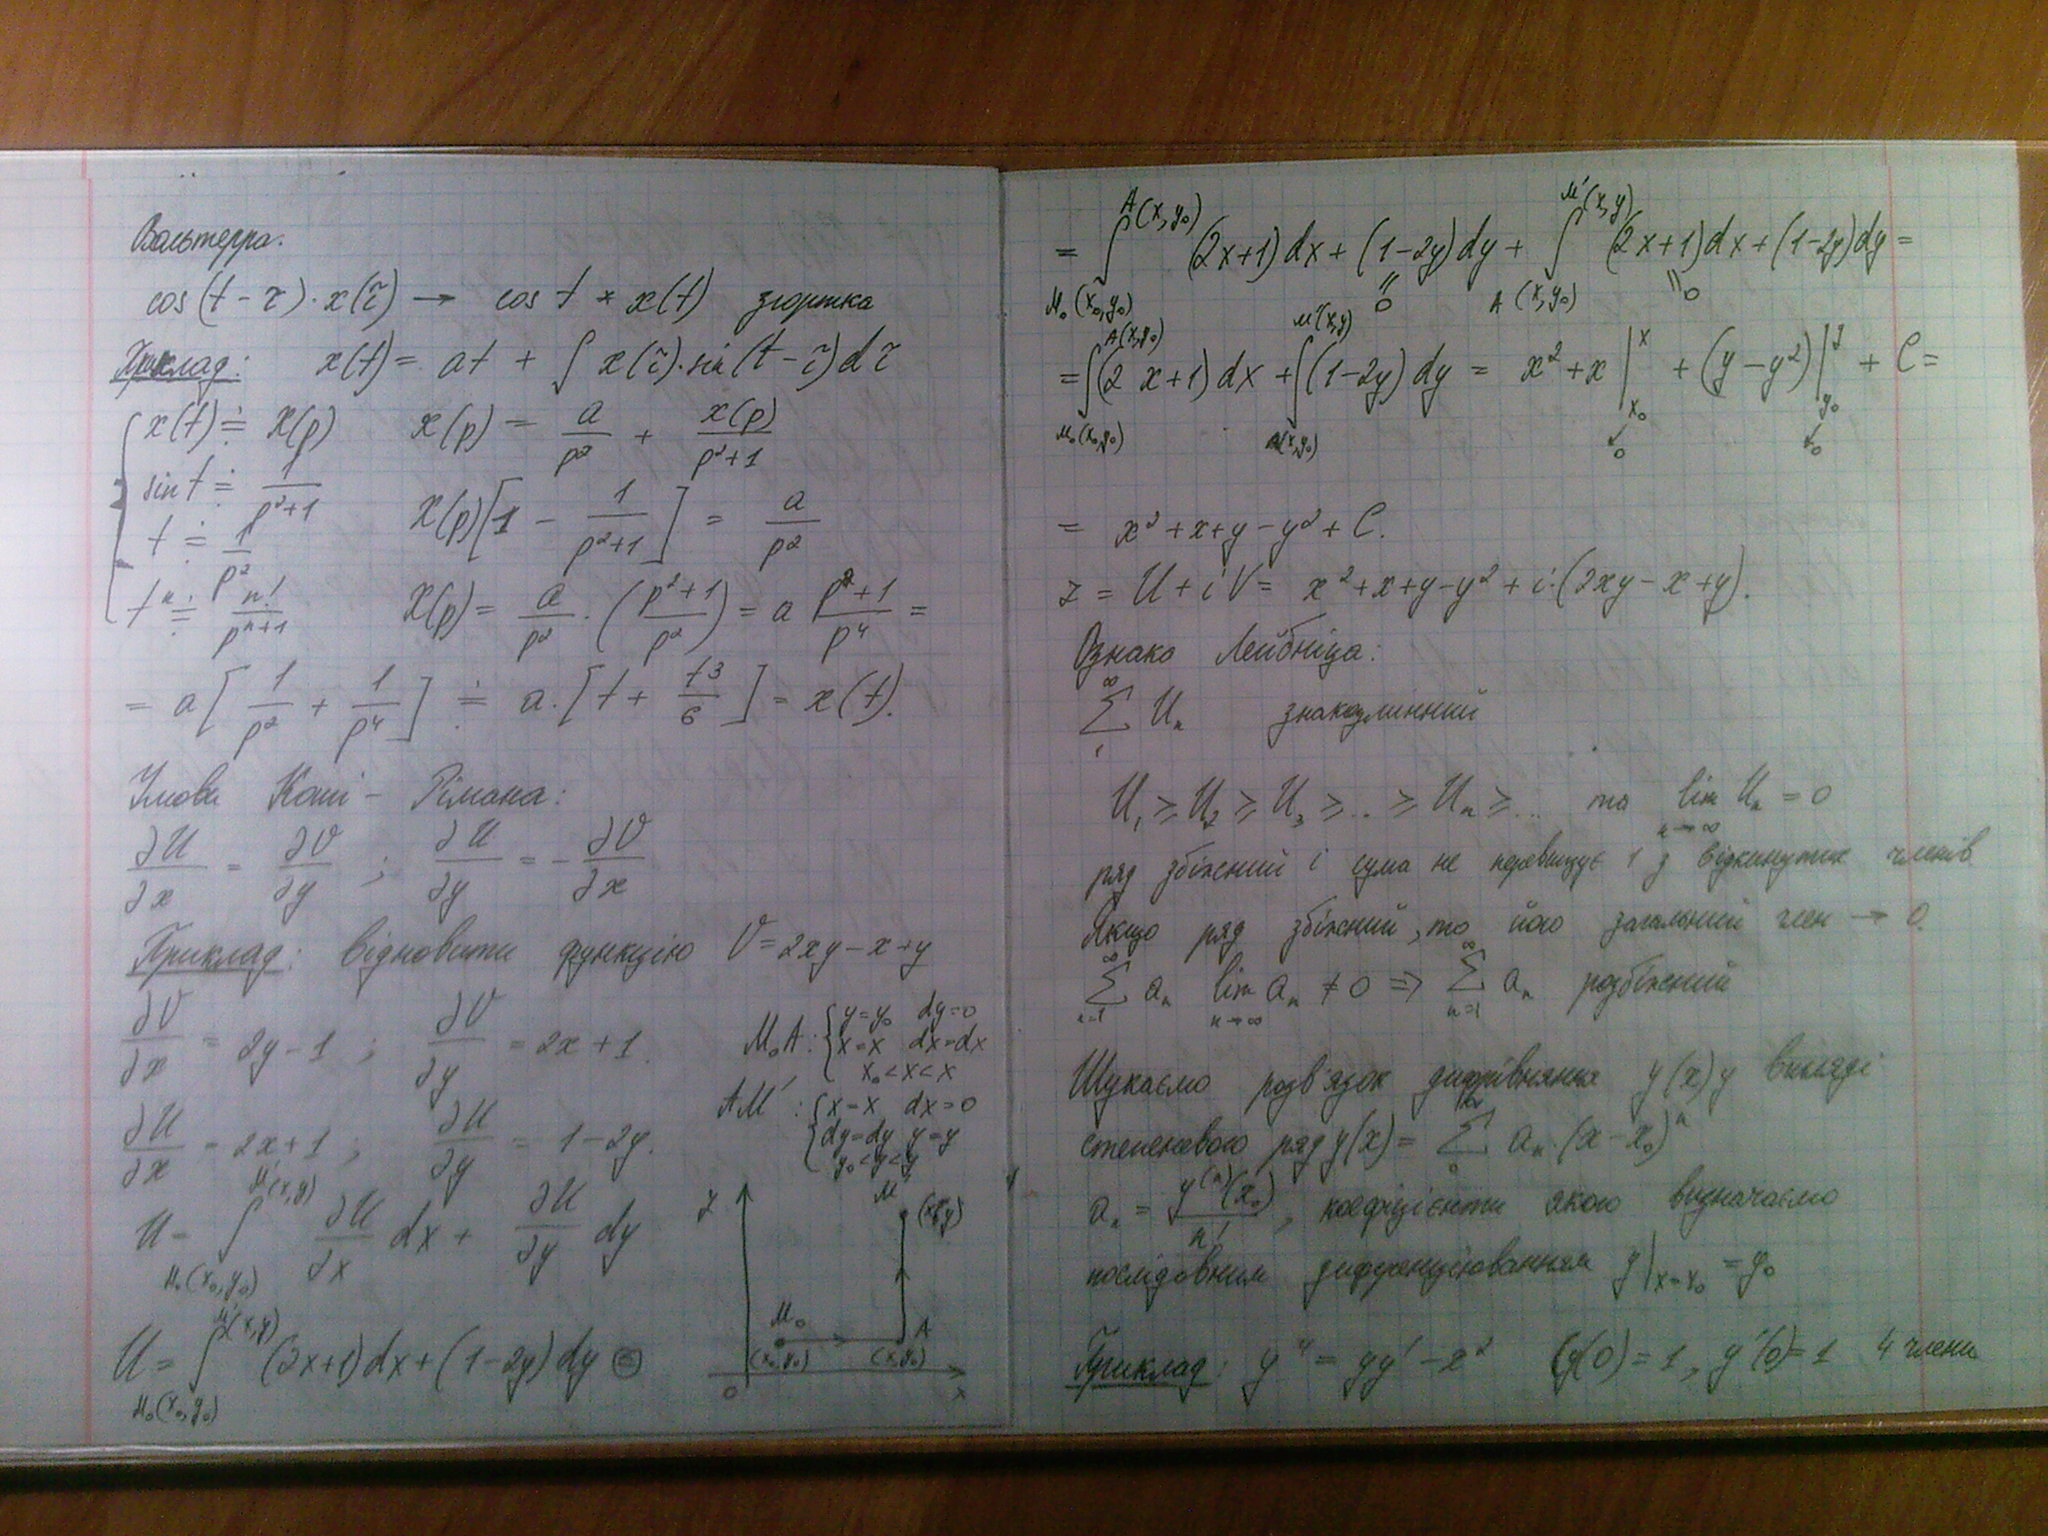 Вольтерра.
cos(t − τ)·x(τ) → cos t * x(t) згортка
Приклад: x(t) = at + ∫ x(τ)·sin(t − τ)dτ
x(t) ≓ X(p) x(p) = a/p² + x(p)/(p²+1)
sin t ≓ 1/(p²+1) X(p)[1 − 1/(p²+1)] = a/p²
t ≓ 1/p²
tⁿ ≓ n!/pⁿ⁺¹ X(p) = a/p² · ((p²+1)/p²) = a (p²+1)/p⁴ =
= a[1/p² + 1/p⁴] ≓ a·[t + t³/6] = x(t).
Умови Коші – Рімана:
∂U/∂x = ∂V/∂y ; ∂U/∂y = −∂V/∂x
Приклад: відновити функцію V = 2xy − x + y
∂V/∂x = 2y − 1 ; ∂V/∂y = 2x + 1.
M₀A: { y = y₀ dy = 0
x = x dx = dx
x₀ < x < x
∂U/∂x = 2x + 1 ; ∂U/∂y = 1 − 2y.
AM′: { x = x dx = 0
dy = dy y = y
y₀ < y < y
U = ∫_{M₀(x₀,y₀)}^{M′(x,y)} ∂U/∂x dx + ∂U/∂y dy
U = ∫_{M₀(x₀,y₀)}^{M′(x,y)} (2x+1)dx + (1−2y)dy ⊜
M′ (x,y)
M₀ A
(x₀,y₀) (x,y₀)
0 x
= ∫_{M₀(x₀,y₀)}^{A(x,y₀)} (2x+1)dx + (1−2y)dy + ∫_{A(x,y₀)}^{M′(x,y)} (2x+1)dx + (1−2y)dy =
= 0 = 0
= ∫_{M₀(x₀,y₀)}^{A(x,y₀)} (2x+1)dx + ∫_{A(x,y₀)}^{M′(x,y)} (1−2y)dy = x² + x |_{x₀}^{x} + (y − y²)|_{y₀}^{y} + C =
↓ 0 ↓ 0
= x² + x + y − y² + C.
z = U + iV = x² + x + y − y² + i·(2xy − x + y).
Ознака Лейбніца:
∑₁^∞ Uₙ знакозмінний
U₁ ≥ U₂ ≥ U₃ ≥ … ≥ Uₙ ≥ … то lim_{n→∞} Uₙ = 0
ряд збіжний і сума не перевищує 1 з відкинутих членів
Якщо ряд збіжний, то його загальний член → 0.
∑_{n=1}^∞ aₙ lim_{n→∞} aₙ ≠ 0 ⇒ ∑_{n=1}^∞ aₙ розбіжний
Шукаємо розв'язок дифрівняння y(x) у вигляді
степеневого ряд y(x) = ∑₀^∞ aₙ·(x − x₀)ⁿ
aₙ = y⁽ⁿ⁾(x₀)/n!, коефіцієнти якого визначаємо
послідовним диференціюванням y|ₓ₌ₓ₀ = y₀
Приклад: y″ = yy′ − x² y(0) = 1, y′(0) = 1 4 члени